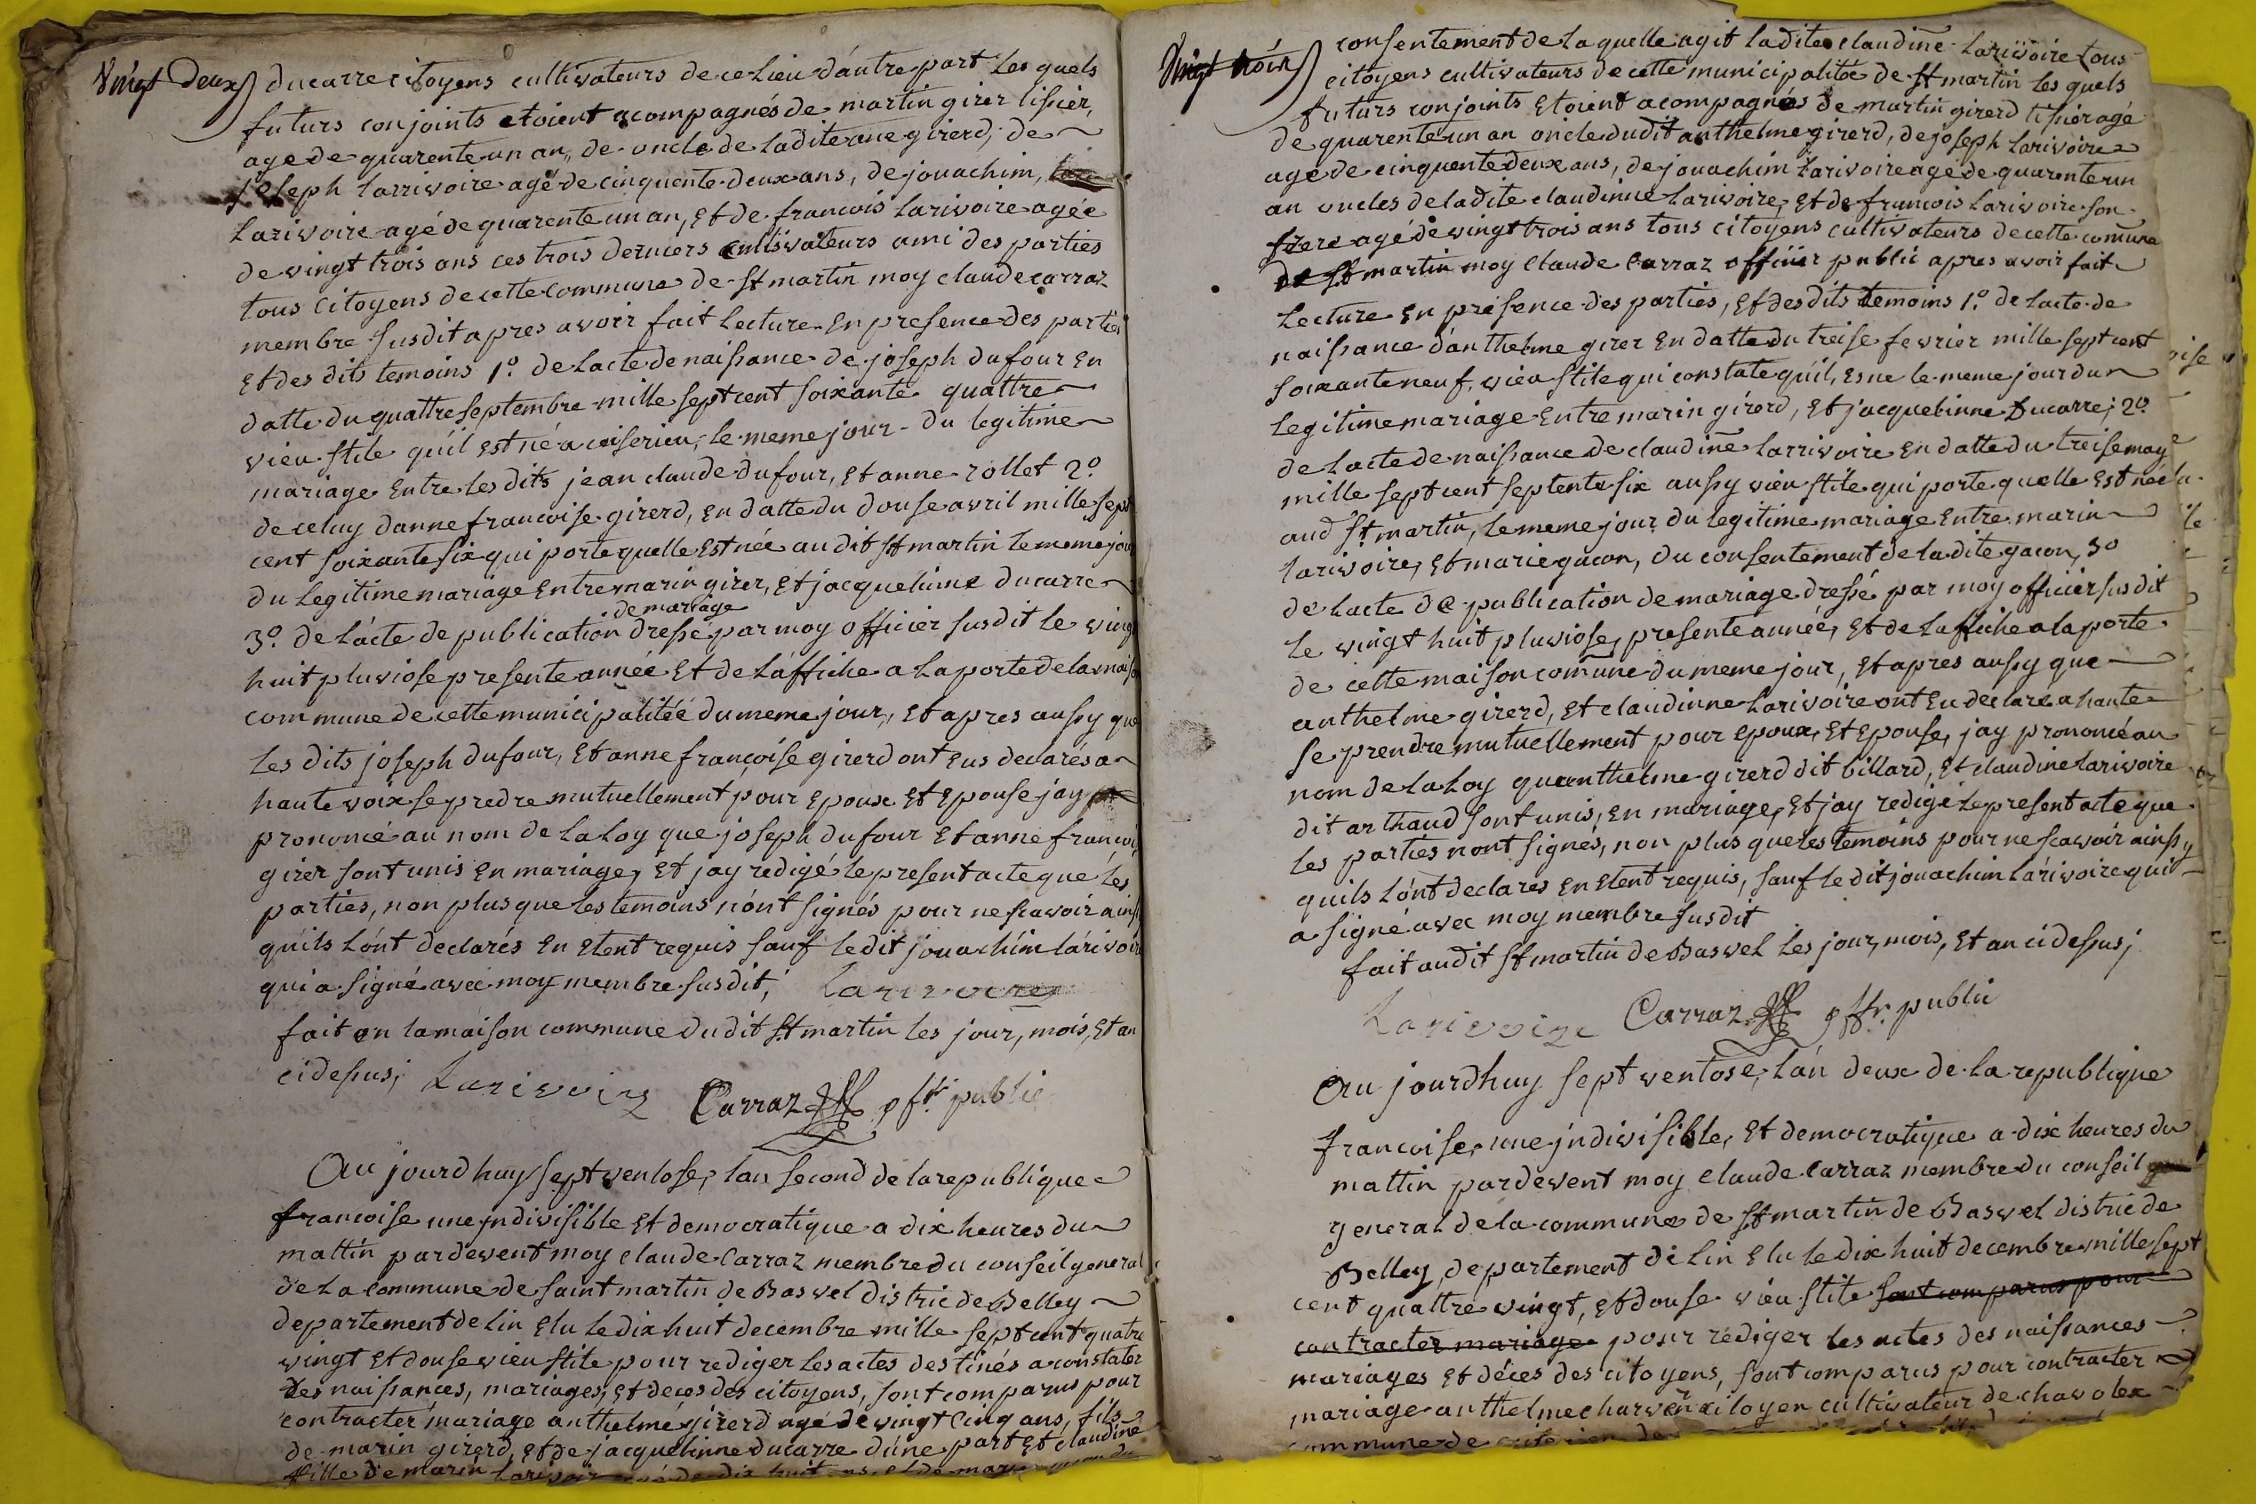 Vingt Deux
ducarre citoyens cultivateurs de ce lieu d'autre part les quels
futurs conjoints etoient acompagnés de martin girer tissier,
agé de quarente un an, de oncle de la dite anne girerd, de
joseph larrivoire agé de cinquente deux ans, de jouachim,
larivoire agé de quarente un an, et de francois larivoire agée
de vingt trois ans ces trois derniers cultivateurs ami des parties
tous citoyens de cette commune de st martin moy claude carraz
membre susdit apres avoir fait lecture en presence des parties
et des dits temoins 1.o de lacte de naissance de joseph dufour en
datte du quattre septembre mille sept cent soixante quattre
vieu stile qu'il est né a ceiserieu, le meme jour du legitime
mariage entre les dits jean claude dufour, et anne rollet 2.o
de celuy danne francoise girerd, en datte du douse avril mille sept
cent soixante six qui porte quelle est née au dit st martin le meme jour
du legitime mariage entre marin girer, et jacquelinne ducarre
de mariage
3.o de lácte de publication dressé par moy officier susdit le vingt
huit pluviose presente année et de láffiche a la porte de la maison
commune de cette municipalitée du meme jour, et apres aussy que
les dits joseph dufour, et anne françoise girerd ont eus declarés a
haute voix se predre mutuellement pour epoux et epouse jay
prononcé au nom de la loy que joseph dufour et anne francoi
girer sont unis en mariage, et jay redigé le present acte que les
parties, non plus que les temoins n'ónt signés pour ne scavoir ainsi
qu'ils lónt declarés en etent requis sauf le dit jouachim lárivoire
qui a signé avec moy membre susdit, Larivoire
fait en la maison commune du dit st martin les jour, mois, et an
cidessus, Larivoire Carraz offr public
Au jourdhuy sept ventose, lan second de la republique
francoise une jndivisible et democratique a dix heures du
mattin pardevent moy claude carraz membre du conseil general
de la commune de saint martin de Bavel distric de Belley
departement de lin elu le dix huit decembre mille sept cent quatre
vingt et douse vieu stile pour rediger les actes destinés a constater
des naissances, mariages, et deces des citoyens, sont comparus pour
contracter mariage anthelme girerd agé de vingt cinq ans, fils
de marin girerd, et de jacquelinne ducarre d'úne part et claudine
fille de marin larivoire agé de dix huit ans, et de marie
Vingt troix
consentement de la quelle agit la dite claudine larivoire tous
citoyens cultivateurs de cette municipalitée de st martin les quels
futurs conjoints etoient acompagnés de martin girerd tissier agé
de quarente un an oncle dudit anthelme girerd, de joseph larivoire
agé de cinquente deux ans, de jouachim larivoire agé de quarente un
an oncles de la dite claudinne larivoire, et de francois larivoire son
frere agé de vingt trois ans tous citoyens cultivateurs de cette comune
de st martin moy claude carraz officier public apres avoir fait
lecture en presence des parties, et des dits temoins 1.o de lacte de
naissance d'anthelme girer en datte du treise fevrier mille sept cent
soixante neuf, vieu stile qui constate qu'il, es ne le meme jour du
legitime mariage entre marin girerd, et jacquelinne ducarre; 2.o
de lacte de naissance de claudine larrivoire en datte du treise may
mille sept cent septente six aussy vieu stile qui porte quelle est née
aud st martin, le meme jour du legitime mariage entre marin
larivoire, et marie gacon, du consentement de la dite gacon, 3.o
de lacte de publication de mariage dressé par moy officier susdit
le vingt huit pluviose, presente année, et de laffiche a la porte
de cette maison comune du meme jour, et apres aussy que
anthelme girerd, et claudinne larivoire ont eu declaré a haute
se prendre mutuellement pour epoux, et epouse, jay prononcé au
nom de la loy qu'anthelme girerd dit billard, et claudine larivoire
dit arthaud sont unis, en mariage, et jay redigé le present acte que
les parties nont signés, non plus que les temoins pour ne scavoir ainssy
quils lónt declarés en etent requis, sauf le dit jouachim lárivoire qui
a signé avec moy membre susdit
fait audit st martin de Bavel les jour, mois, et an ci dessus,
Larivoire Carraz offr public
Au jourdhuy sept ventose, lán deux de la republique
francoise, une jndivisible, et democratique a dix heures du
mattin pardevent moy claude carraz membre du conseil
general de la commune de st martin de Bavel distric de
Belley, departement de lin elu le dix huit decembre mille sept
cent quattre vingt, et douse vieu stile sont comparus pour
contracter mariage pour rédiger les actes des naissances
mariages et déces des citoyens, sont comparus pour contracter
mariage anthelme charvin citoyen cultivateur de chavolex
commune de